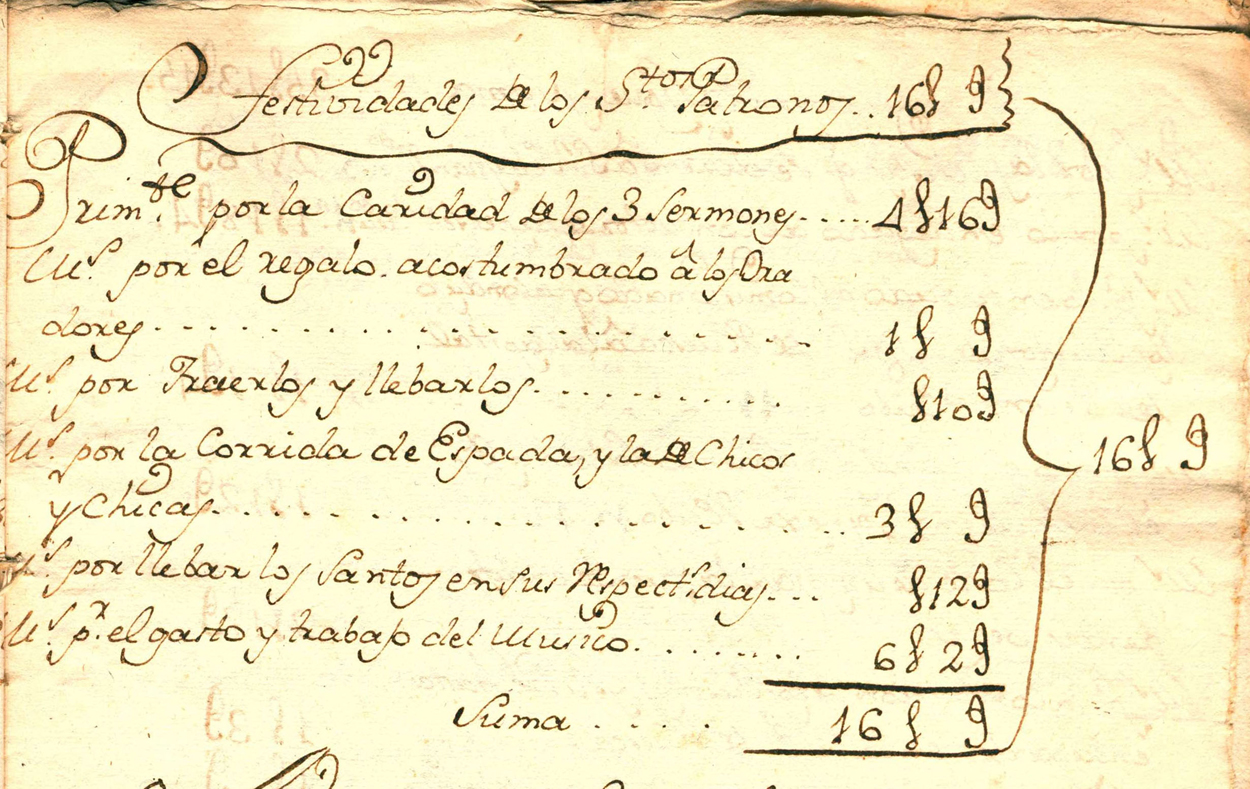 Festividades de los S.tos Patronos.. 16 ƚ 9
Prim.te por la Caridad de los 3 Sermones..... 4 ƚ 16 9
por el regalo acostumbrado â los Ora
dores.................... 1 ƚ 9
por Traerlos y llebarlos........... ƚ 10 9
por la Corrida de Espada, y la de Chicos
y Chicas.................... 3 ƚ 9
16 ƚ 9
por llebar los Santos en sus Respect.s dias... ƚ 12 9
p.r el gasto y trabajo del Musico........ 6 ƚ 2 9
Suma ..... 16 ƚ 9